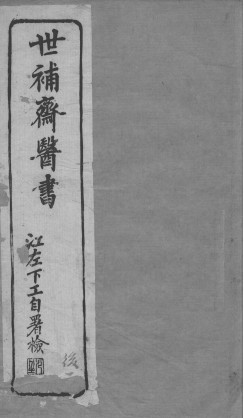 世補齋醫書
江左下工自署檢
後一